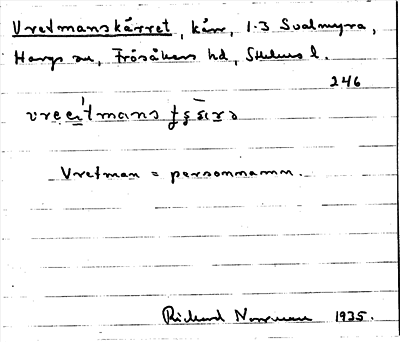 Vretmanskärret, kärr, 1-3 Svalmyra,
Hargs sn, Frösåkers hd, Sthlms l.
246
Vretman = personnamn.
Richard Norrman 1935.